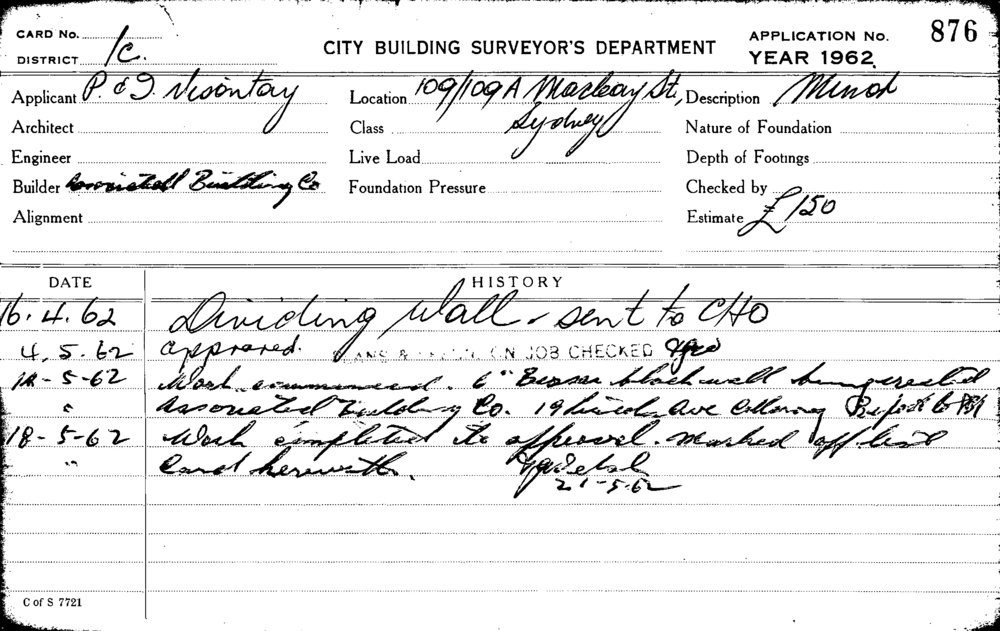 CARD No.
DISTRICT 1c.
CITY BUILDING SURVEYOR'S DEPARTMENT
APPLICATION No. 876
YEAR 1962
Applicant P. & I. Visontay
Location 109/109A Macleay St., Sydney
Description Minor
Architect
Class
Nature of Foundation
Engineer
Live Load
Depth of Footings
Builder Associated Building Co
Foundation Pressure
Checked by
Alignment
Estimate £150
DATE
HISTORY
16.4.62 Dividing Wall - sent to CHO
4.5.62 approved. ON JOB CHECKED
14-5-62 Work commenced. 6" Besser block wall being erected
" Associated Building Co. 19 Ave Collaroy
18-5-62 Work completed to approval. Marked off list
" Card herewith.
21-5-62
C of S 7721